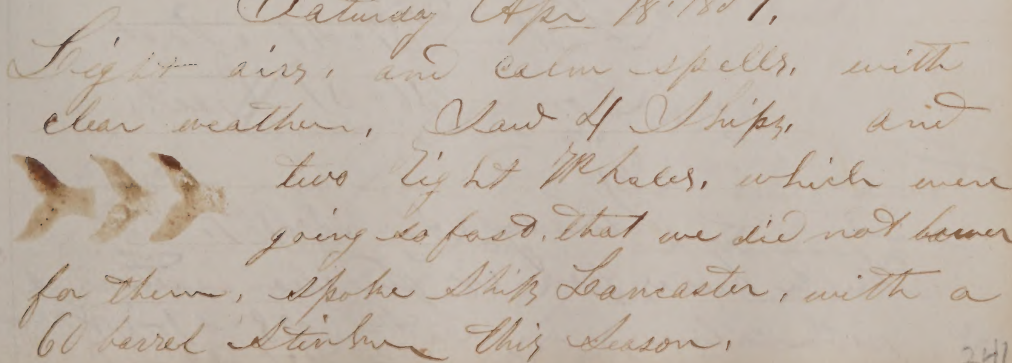 Saturday Apr 18. 1857.
Light airs, and calm spells, with
clear weather, Saw 4 Ships, and
two right Whales, which were
going so fast, that we did not lower
for them, spoke Ship Lancaster, with a
60 barrel this Season.
241